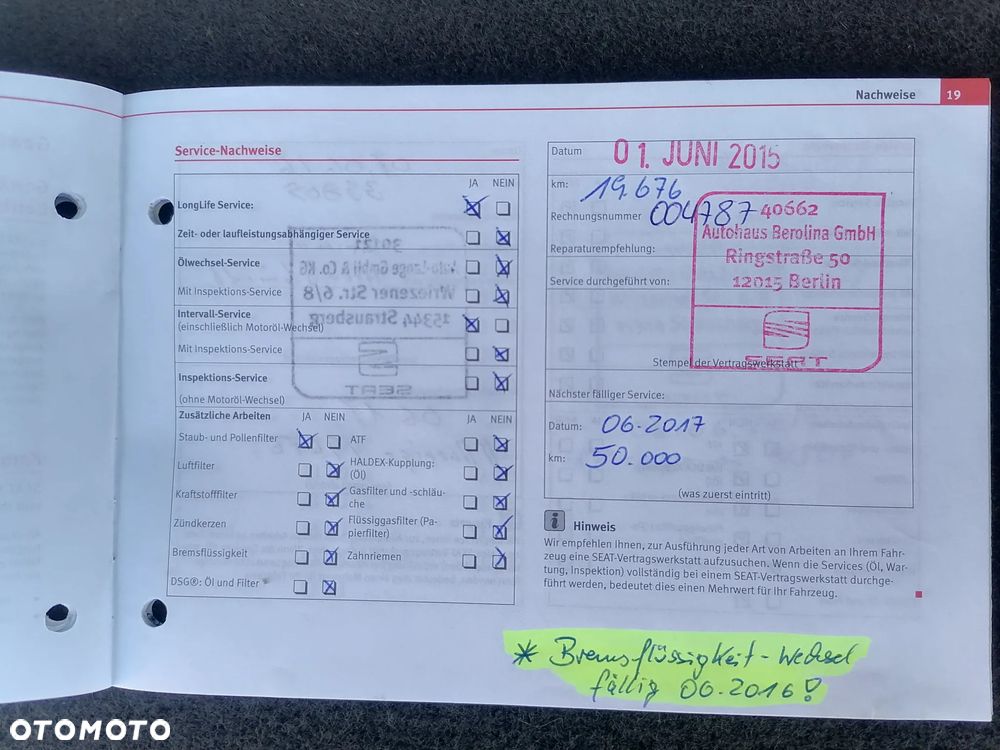 Nachweise 19
Service-Nachweise
JA NEIN
LongLife Service:
Zeit- oder laufleistungsabhängiger Service
Ölwechsel-Service
Mit Inspektions-Service
Intervall-Service
(einschließlich Motoröl-Wechsel)
Mit Inspektions-Service
Inspektions-Service
(ohne Motoröl-Wechsel)
Zusätzliche Arbeiten JA NEIN JA NEIN
Staub- und Pollenfilter ATF
Luftfilter HALDEX-Kupplung:
(Öl)
Kraftstofffilter Gasfilter und -schläu-
che
Zündkerzen Flüssiggasfilter (Pa-
pierfilter)
Bremsflüssigkeit Zahnriemen
DSG®: Öl und Filter *
Datum 01. JUNI 2015
km: 19.676
Rechnungsnummer 004787
40662
Autohaus Berolina GmbH
Reparaturempfehlung:
Ringstraße 50
Service durchgeführt von:
12015 Berlin
SEAT
Stempel der Vertragswerkstatt
Nächster fälliger Service:
Datum: 06.2017
km: 50.000
(was zuerst eintritt)
i Hinweis
Wir empfehlen Ihnen, zur Ausführung jeder Art von Arbeiten an Ihrem Fahr-
zeug eine SEAT-Vertragswerkstatt aufzusuchen. Wenn die Services (Öl, War-
tung, Inspektion) vollständig bei einem SEAT-Vertragswerkstatt durchge-
führt werden, bedeutet dies einen Mehrwert für Ihr Fahrzeug.
* Bremsflüssigkeit-Wechsel
fällig 06.2016!
OTOMOTO